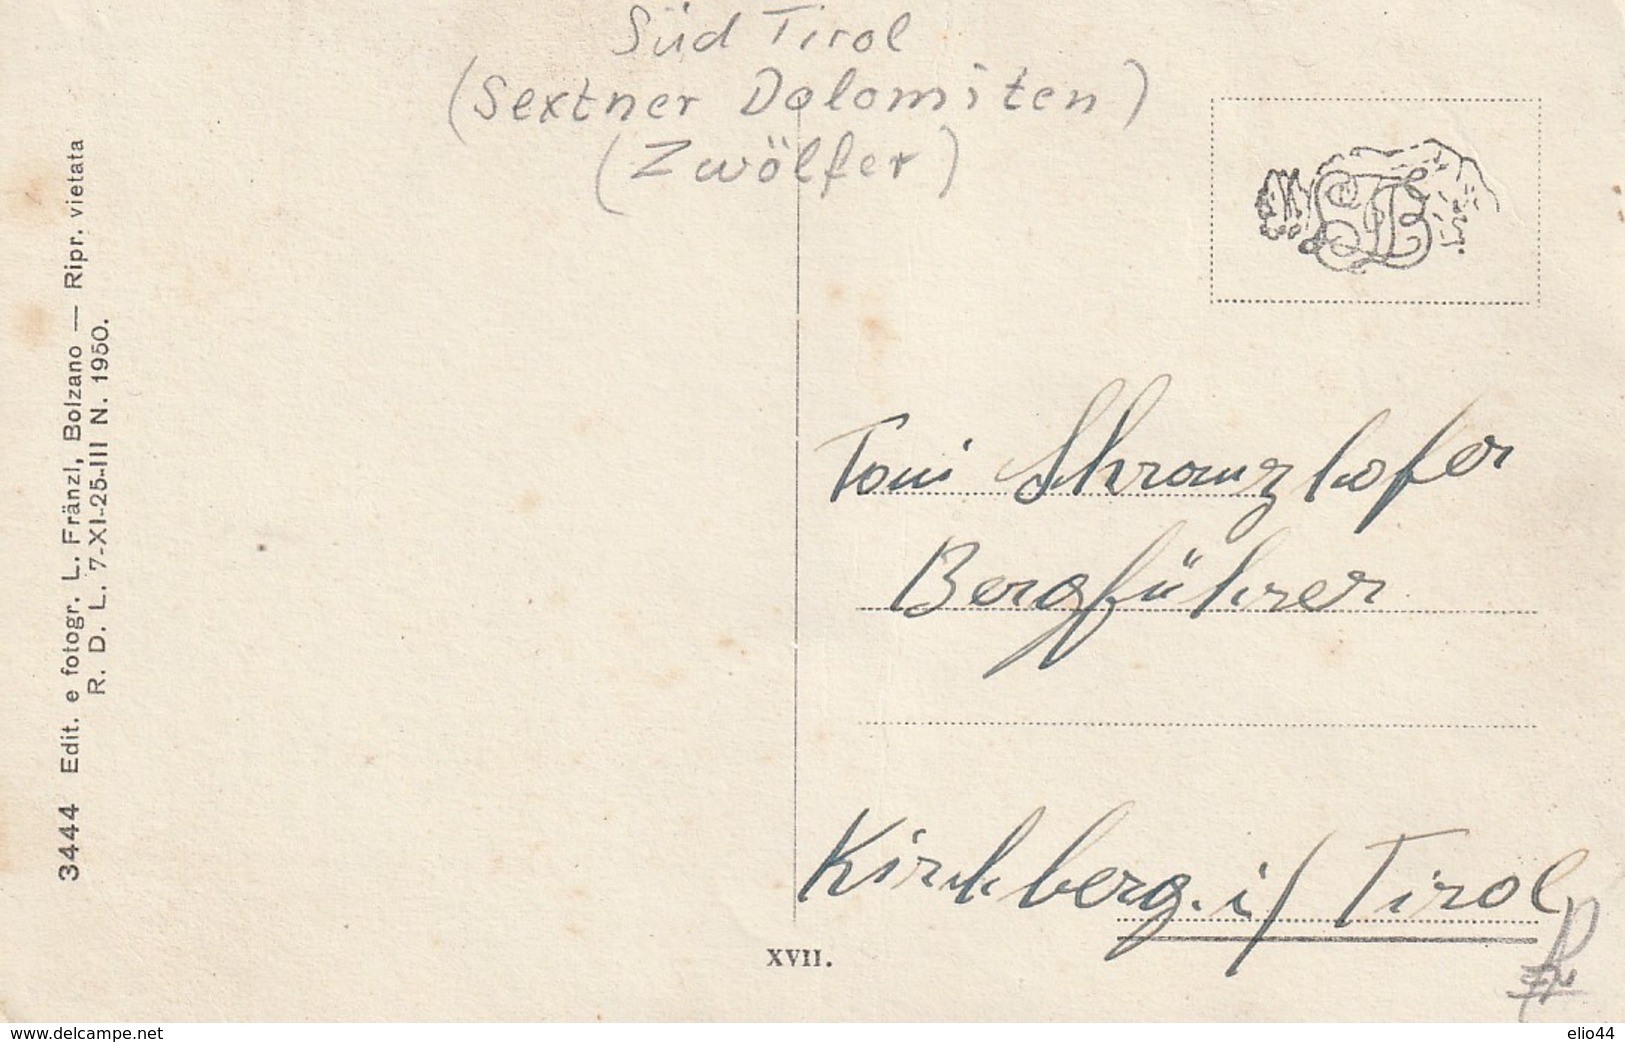 Süd Tirol
(Sextner Dolomiten)
(Zwölfer)
3444 Edit. e fotogr. L. Fränzl, Bolzano — Ripr. vietata
R. D. L. 7-XI-25-III N. 1950.
Toni Skranzhofer
Bergführer
Kirchberg. i/Tirol
XVII.
www.delcampe.net
elio44